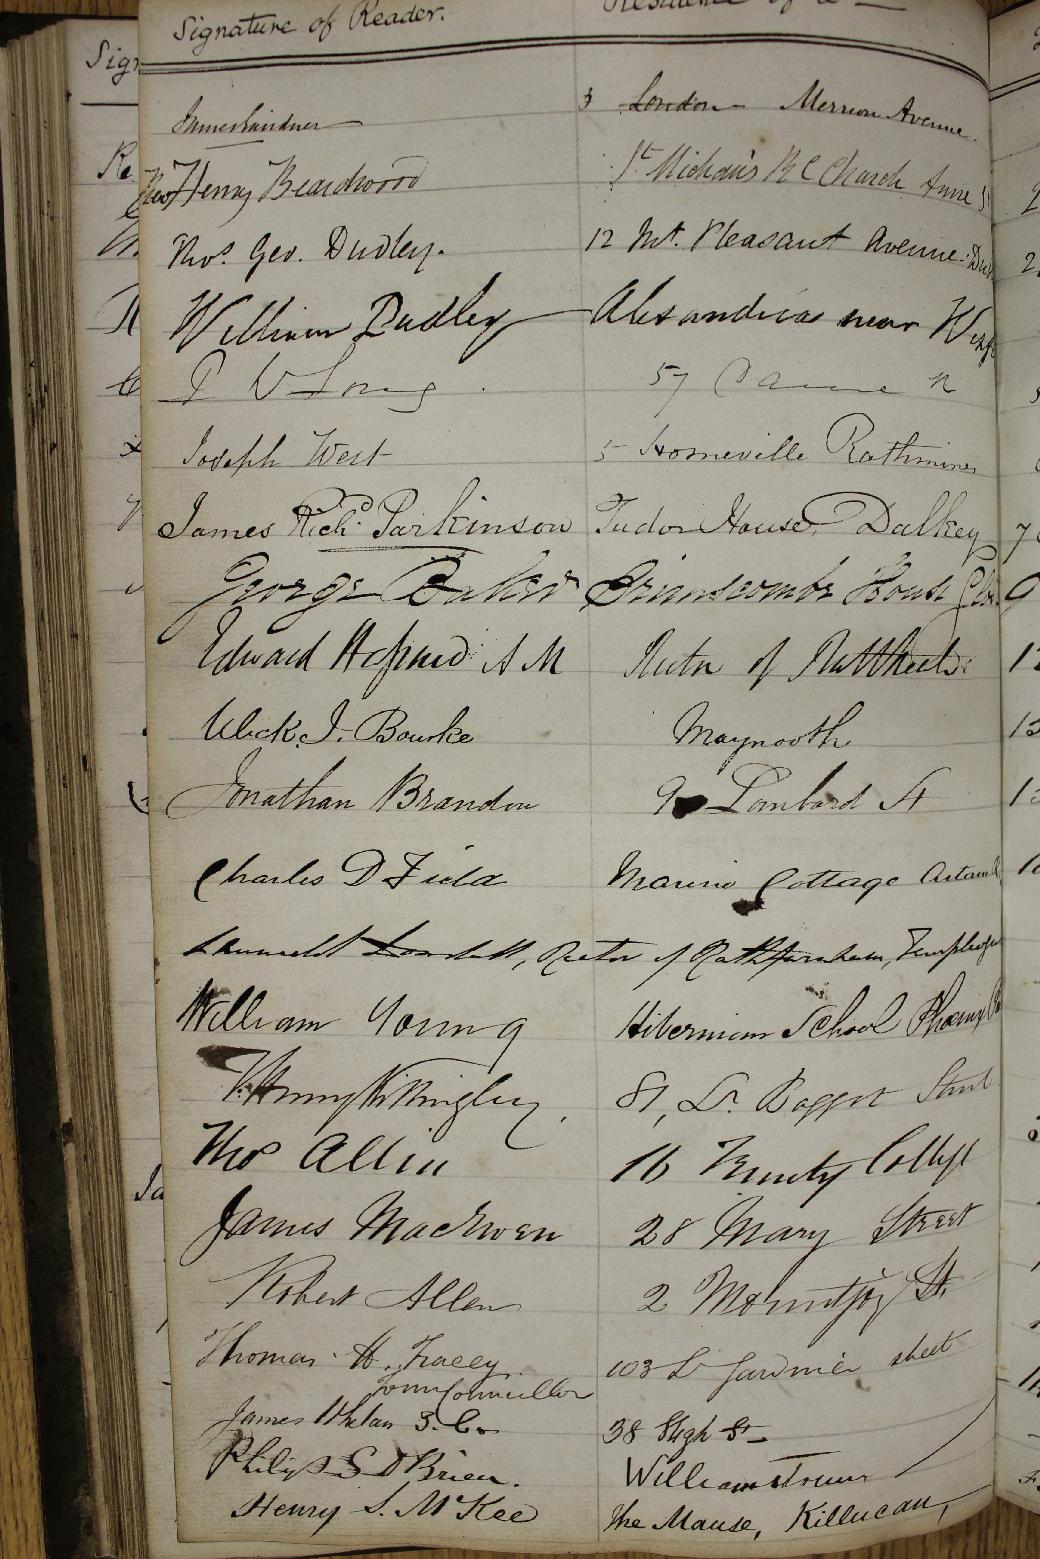 Signature of Reader. Residence of
James Gardner 3 London Merrion Avenue
Rev Henry Beardwood St Michan's R C Church Anne St
Thos. Geo. Dudley. 12 Mt. Pleasant Avenue. Dub
William Dudley Alexandria near
Long 57
Joseph West 5 Homeville Rathmines
James Richd Parkinson Tudor House, Dalkey
George Baker Brimscombe House Glo
Edward A M Rector of
Ulick J. Bourke Maynooth
Jonathan Brandon 9 Lombard St
Charles D Field Marino Cottage
Rector of Rathfarnham,
William Young Hibernian School Phoenix
81, Lr. Baggot Street
Thos Allin 16 Trinity College
James MacEwen 28 Mary Street
Robert Allen 2 Mountjoy St.
Thomas H. Tracey 103 L Gardiner street
Town Councillor
James Whelan 38 High St
Philip S O'Brien. Williamstown
Henry S. McKee The Manse, Killucan,